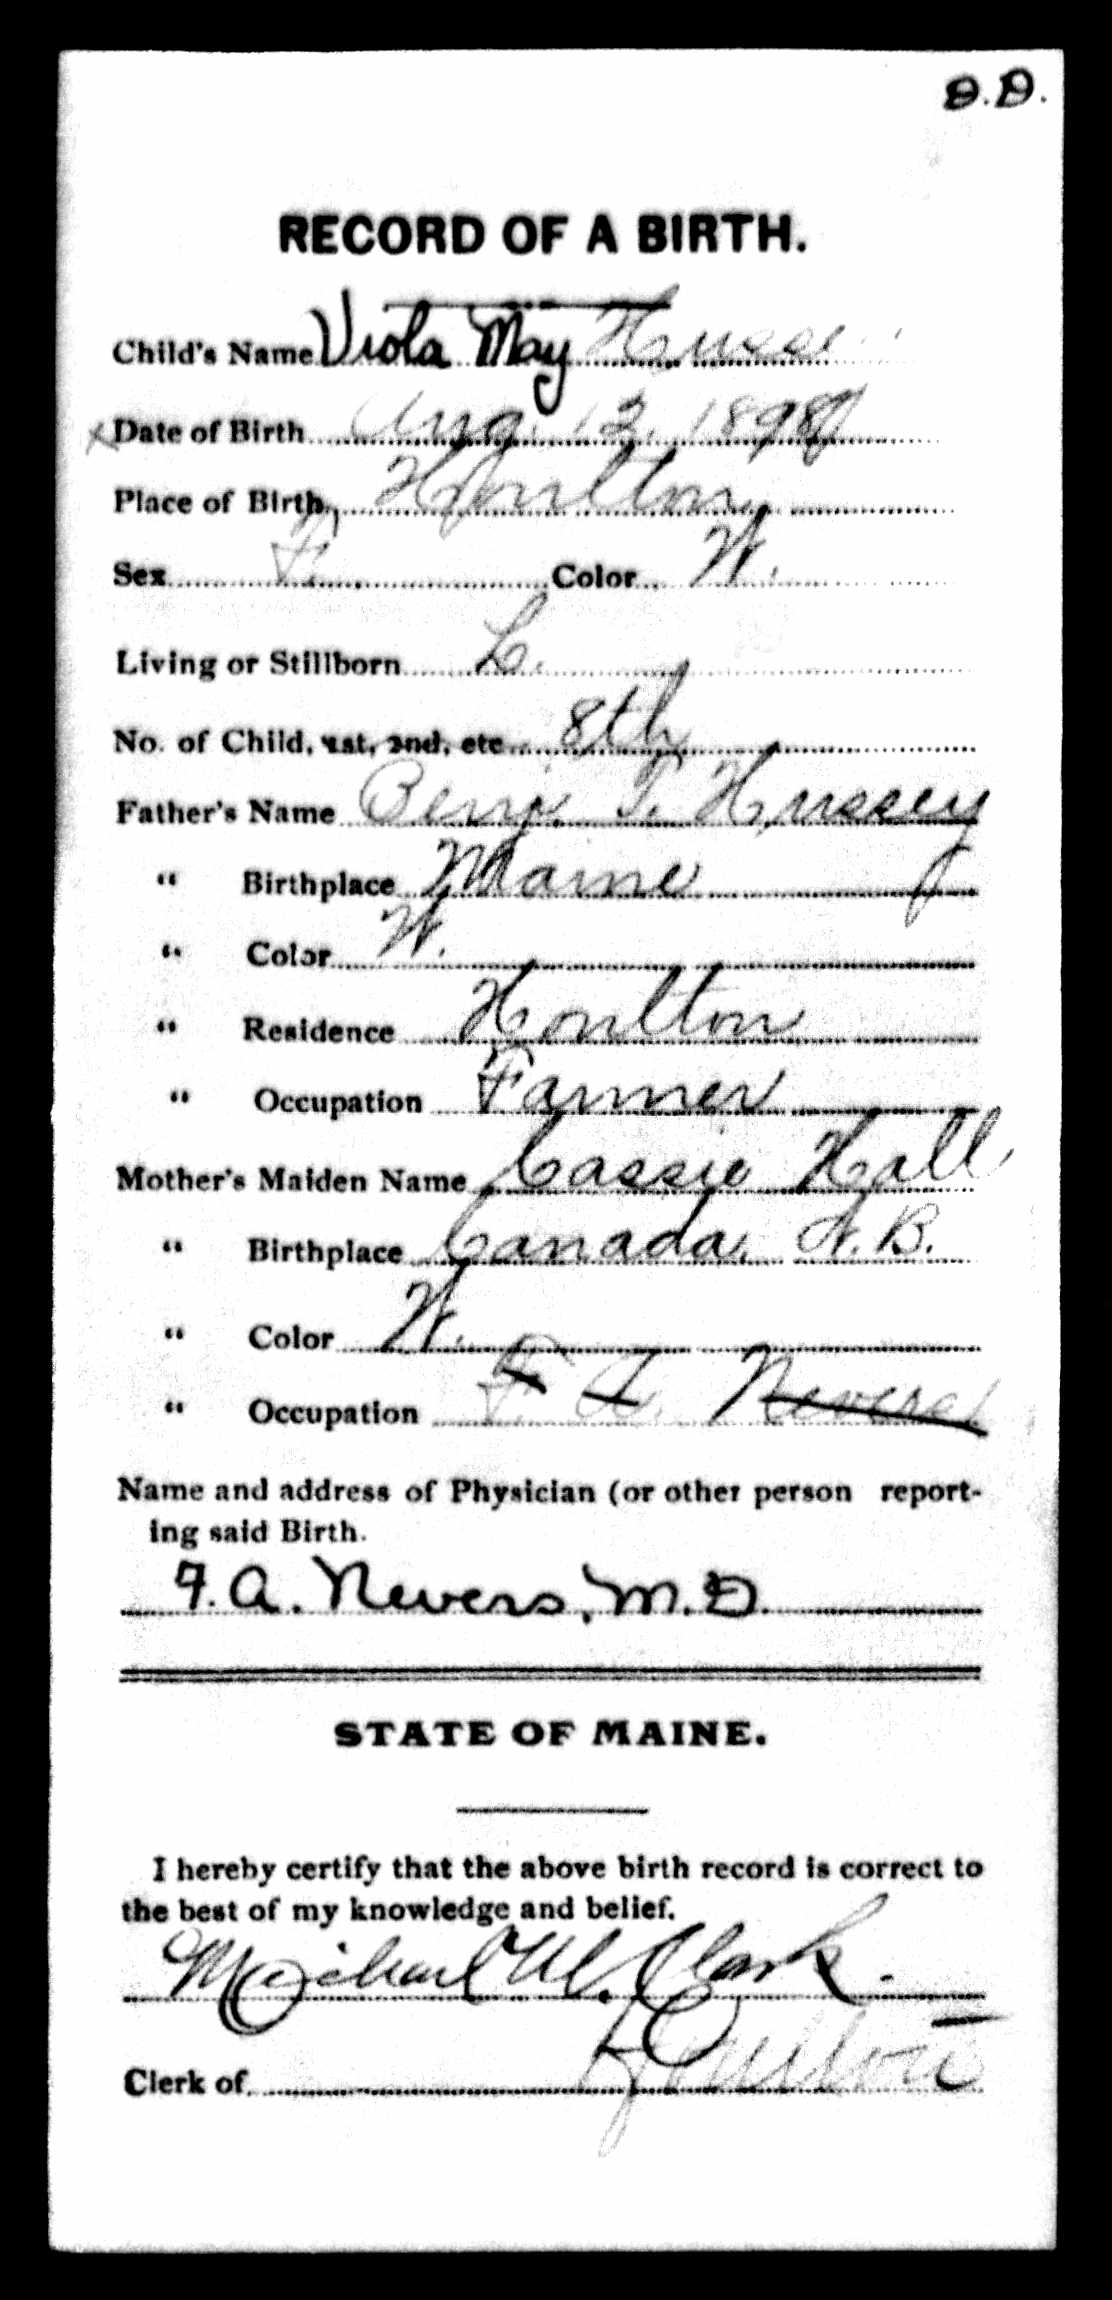 D.D.
RECORD OF A BIRTH.
Child's Name Viola May Husse
Date of Birth Aug. 12, 1898
Place of Birth, Houlton
Sex F. Color W.
Living or Stillborn L.
No. of Child, 1st, 2nd, etc 8th
Father's Name Benj. F. Hussey
" Birthplace Maine
" Color W.
" Residence Houlton
" Occupation Farmer
Mother's Maiden Name Cassie Hall
" Birthplace Canada, N.B.
" Color W.
" Occupation F. A. Nevers
Name and address of Physician (or other person report-
ing said Birth.
F. A. Nevers, M.D.
STATE OF MAINE.
I hereby certify that the above birth record is correct to
the best of my knowledge and belief.
Michael M. Clark.
Clerk of Houlton